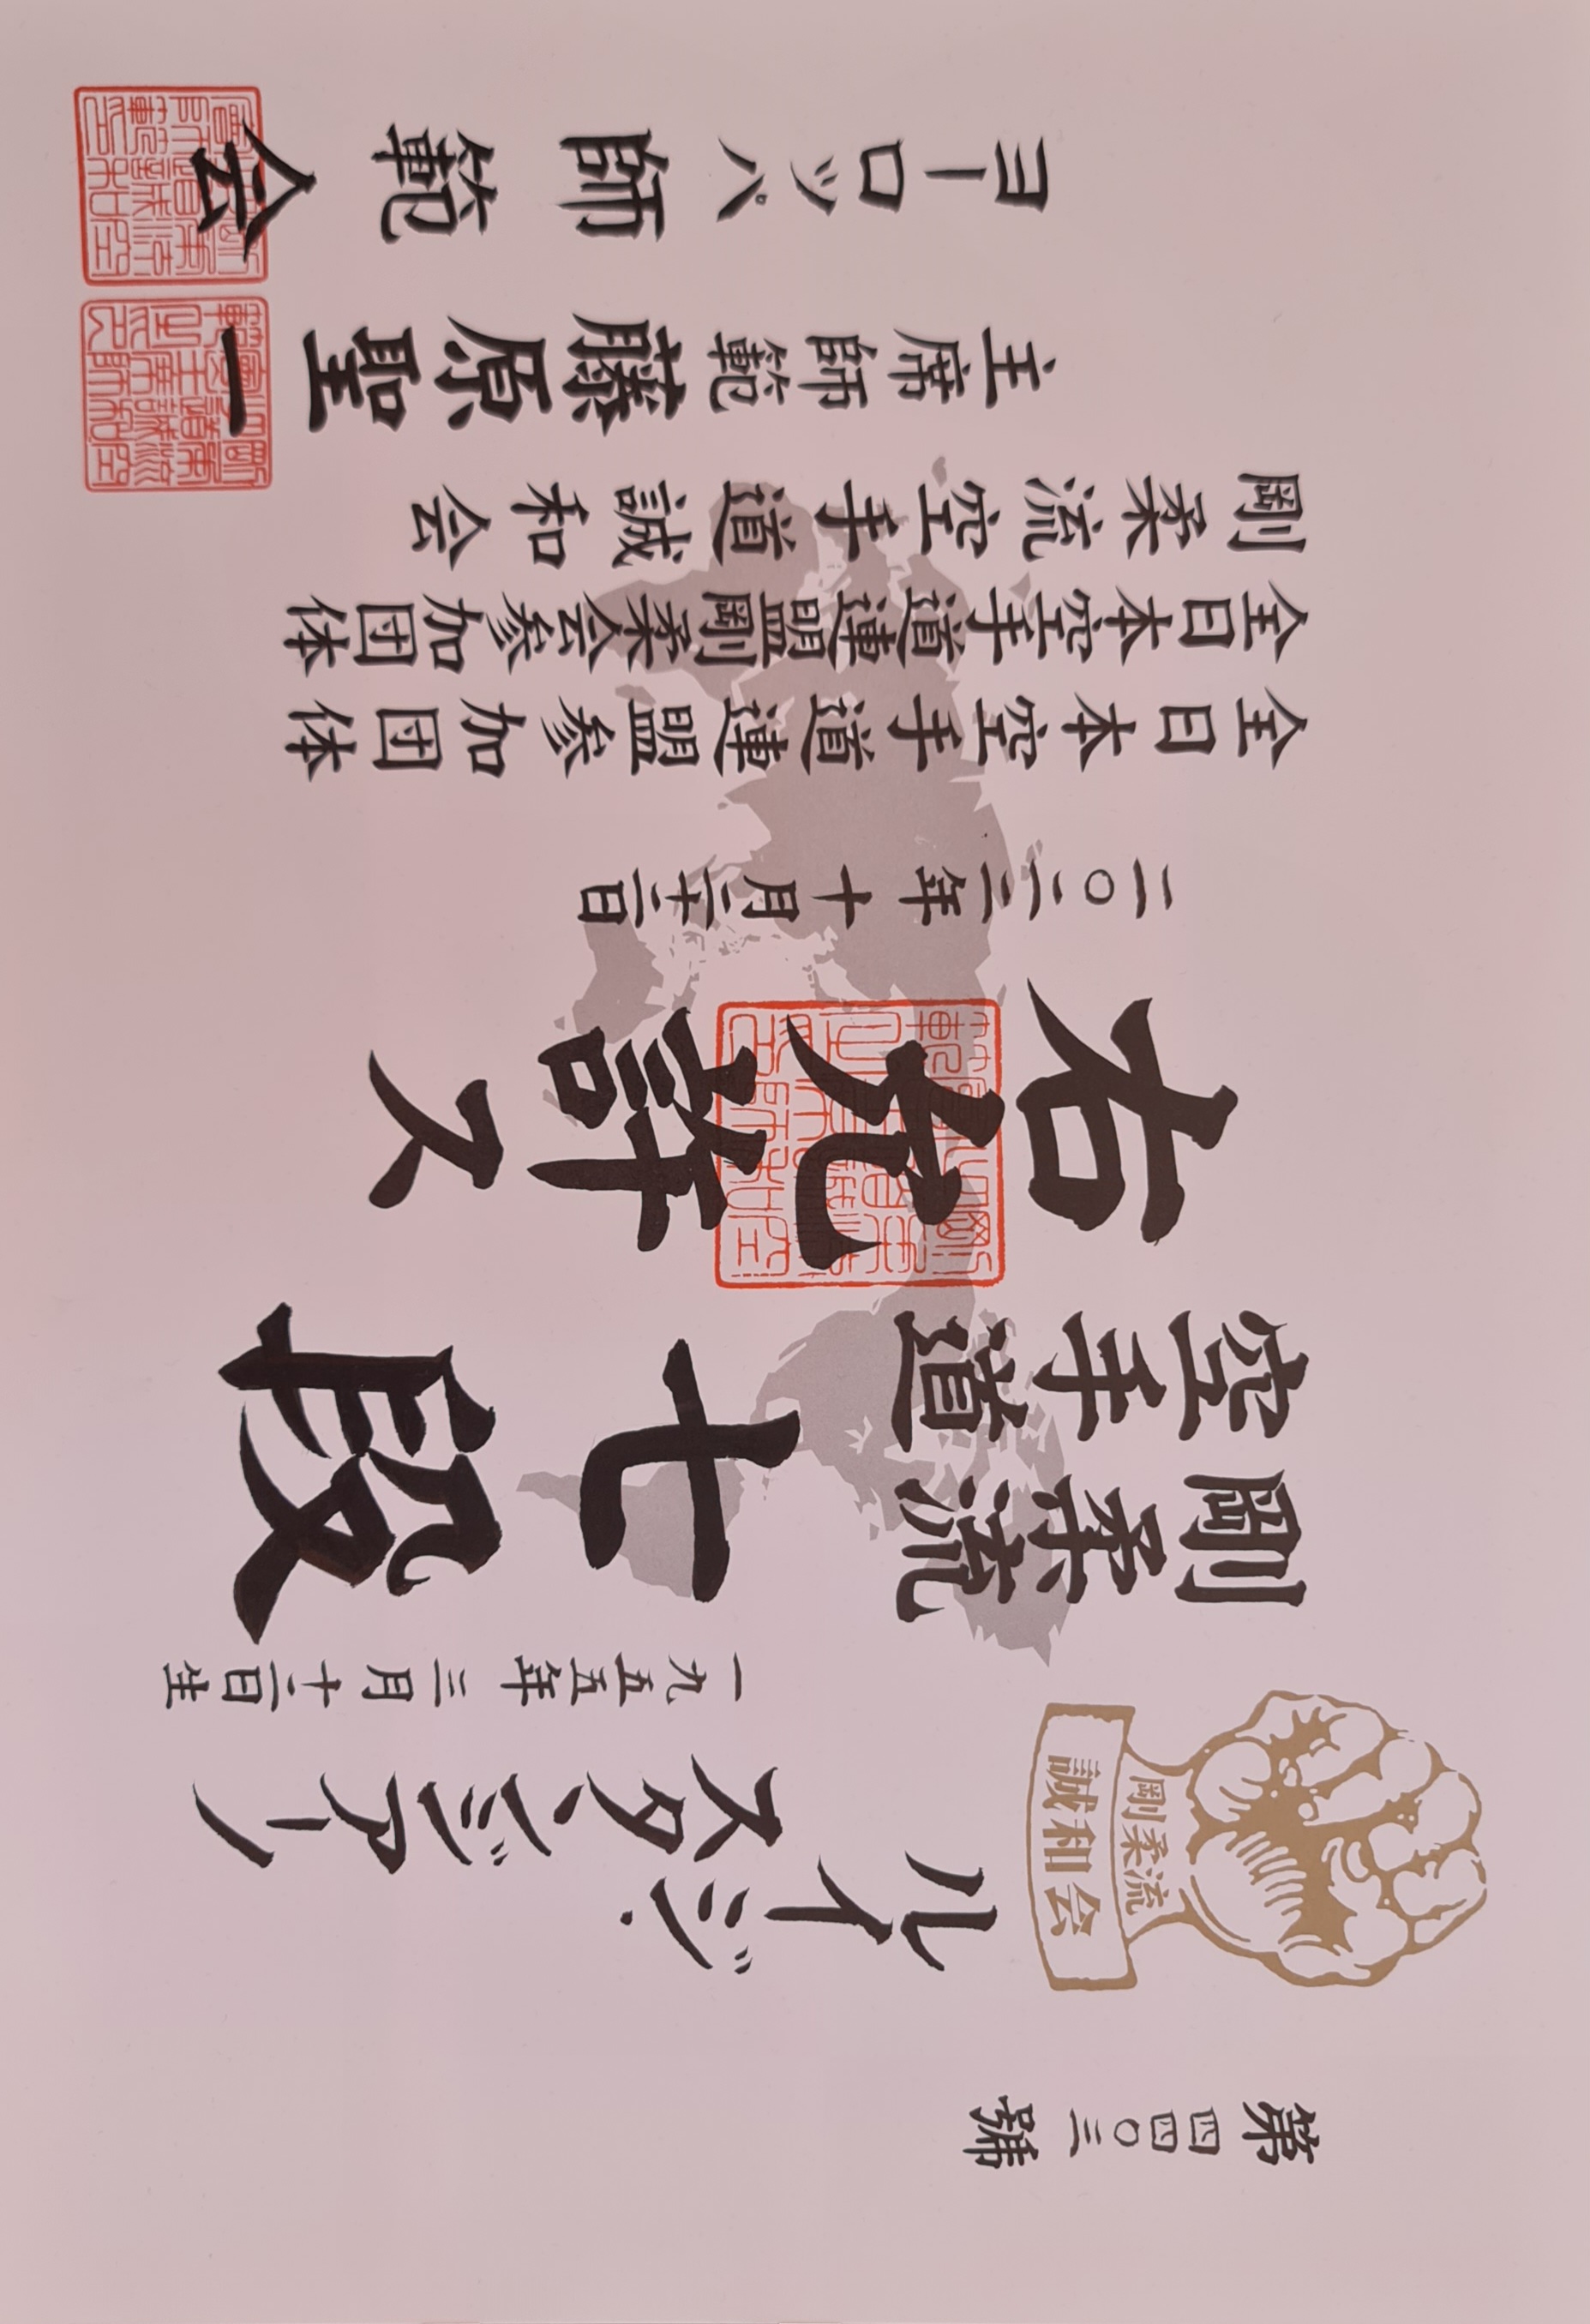 第四四〇三號
剛柔流
誠和会
ルイジ・
スタンジアーノ
一九五五年三月十二日生
剛柔流
空手道
七段
右允許ス
二〇二三年十月二十二日
全日本空手道連盟参加団体
全日本空手道連盟剛柔会参加団体
剛柔流空手道誠和会
主席師範藤原聖一
ヨーロッパ師範会